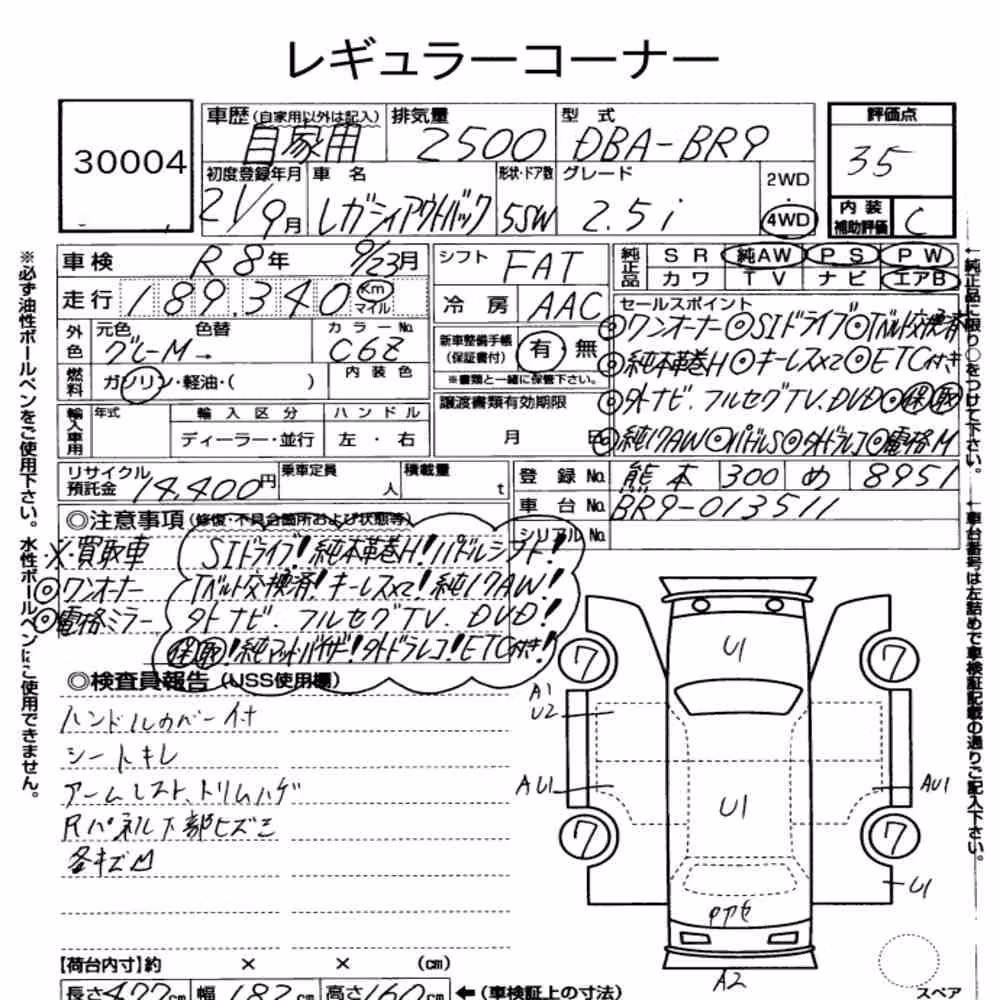 レギュラーコーナー
30004
車歴(自家用以外は記入) 排気量 型式 評価点
自家用 2500 DBA-BR9 35
初度登録年月 車名 形状・ドア数 グレード 2WD
21/9月 レガシィアウトバック 5SW 2.5i 4WD
内装補助評価 C
車検 R8年 9/23月 シフト FAT
走行 189,340 Km マイル 冷房 AAC
純正品 SR 純AW PS PW
カワ TV ナビ エアB
セールスポイント
◎ワンオーナー◎SIドライブ◎Tベルト交換済
◎純本革巻H◎キーレスx2◎ETC付き
◎外ナビ.フルセグTV.DVD◎保取
◎純17AW◎パドルS◎外ドラレコ◎電格M
外色 元色 色替 カラーNo.
グレーM → C6Z
新車整備手帳(保証書付) 有 無
※書類と一緒に保管下さい。
燃料 ガソリン・軽油・( ) 内装色
譲渡書類有効期限
月 日
輸入車用 年式 輸入区分 ハンドル
ディーラー・並行 左・右
リサイクル預託金 14,400円 乗車定員 人 積載量 t
登録No. 熊本 300 め 8951
車台No. BR9-013511
シリアルNo.
◎注意事項(修復・不具合箇所および状態等)
※買取車 SIドライブ!純本革巻H!パドルシフト!
◎ワンオーナー Tベルト交換済!キーレスx2!純17AW!
◎電格ミラー 外ナビ.フルセグTV.DVD!
保取!純マット.バイザー!外ドラレコ!ETC付き!
◎検査員報告(USS使用欄)
ハンドルカバー付
シートキレ
アームレスト、トリムハゲ
Rパネル下部ヒズミ
各キズM
【荷台内寸】約 × × (cm)
長さ477cm 幅182cm 高さ160cm ←(車検証上の寸法)
U1
7 7
A1
U2
AU1 U1 AU1
7 7
U1
Pアセ
A2
スペア
※必ず油性ボールペンをご使用下さい。水性ボールペンはご使用できません。
←純正品に限り○をつけて下さい。
←車台番号は左詰めで車検証記載の通りご記入下さい。